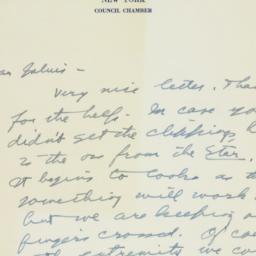 NEW YORK
COUNCIL CHAMBER
Very nice letter. Than
for the help. In case you
didn't get the clippings, h
is the one from the Star.
It begins to look as th
something will work
but we are keeping o
fingers crossed. Of co
extremity we co